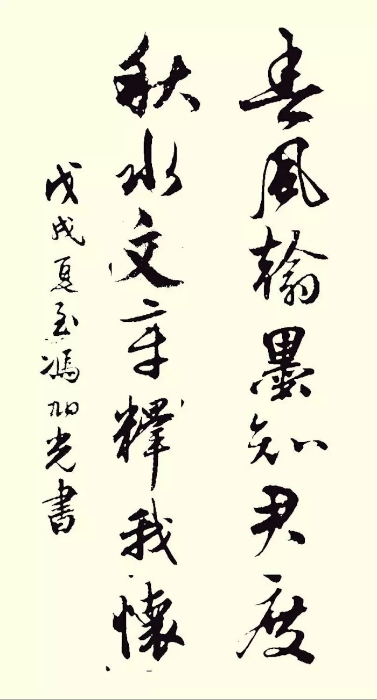 春风翰墨知尹度
秋水文章釋我懷
戊戌夏至馮旭光書